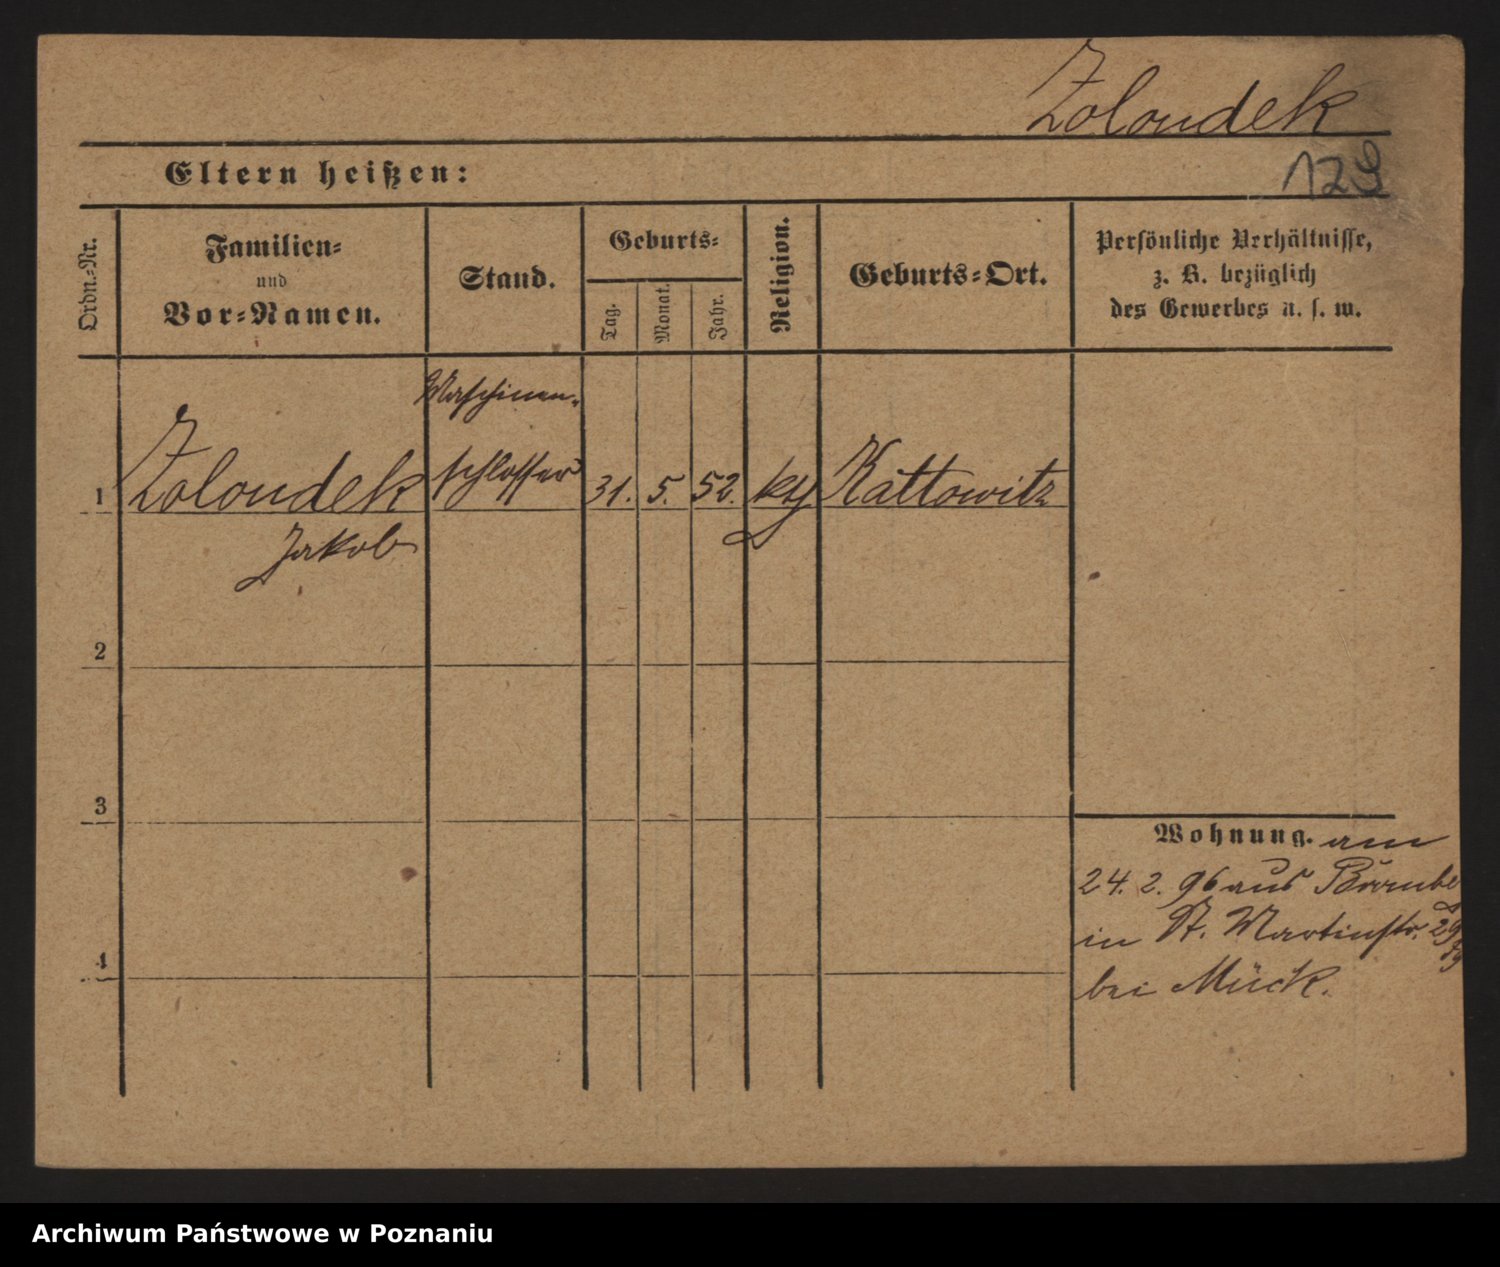 Zoloudek
129
Eltern heißen:
Ordn.-Nr.
Familien-
und
Vor-Namen.
Stand.
Geburts-
Tag.
Monat.
Jahr.
Religion.
Geburts-Ort.
Persönliche Verhältnisse,
z. B. bezüglich
des Gewerbes u. s. w.
Maschinen-
1 Zoloudek schlosser 31. 5. 52. kth Kattowitz
Jakob
2
3
4
Wohnung. am
24. 2. 96 aus
in St. Martinstr. 29
bei Mück.
Archiwum Państwowe w Poznaniu